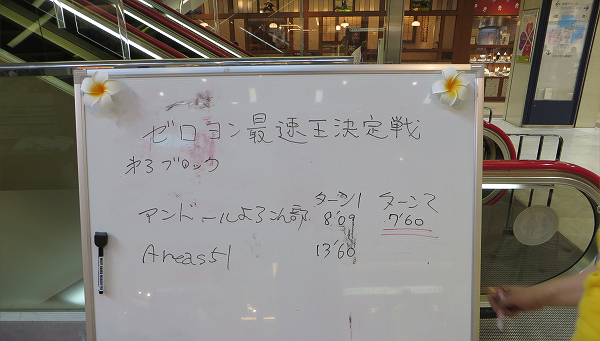 ゼロヨン最速王決定戦
第3ブロック
ターン1 ターン2
アンドールよろこん部 8'09 7'60
Areas51 13'60